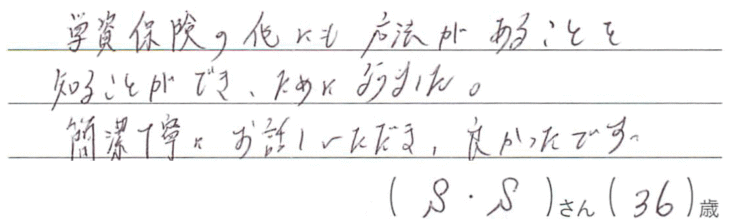 学資保険の他にも方法があることを
知ることができ、ためになりました。
簡潔丁寧にお話しいただき、良かったです。
(S・S)さん(36)歳